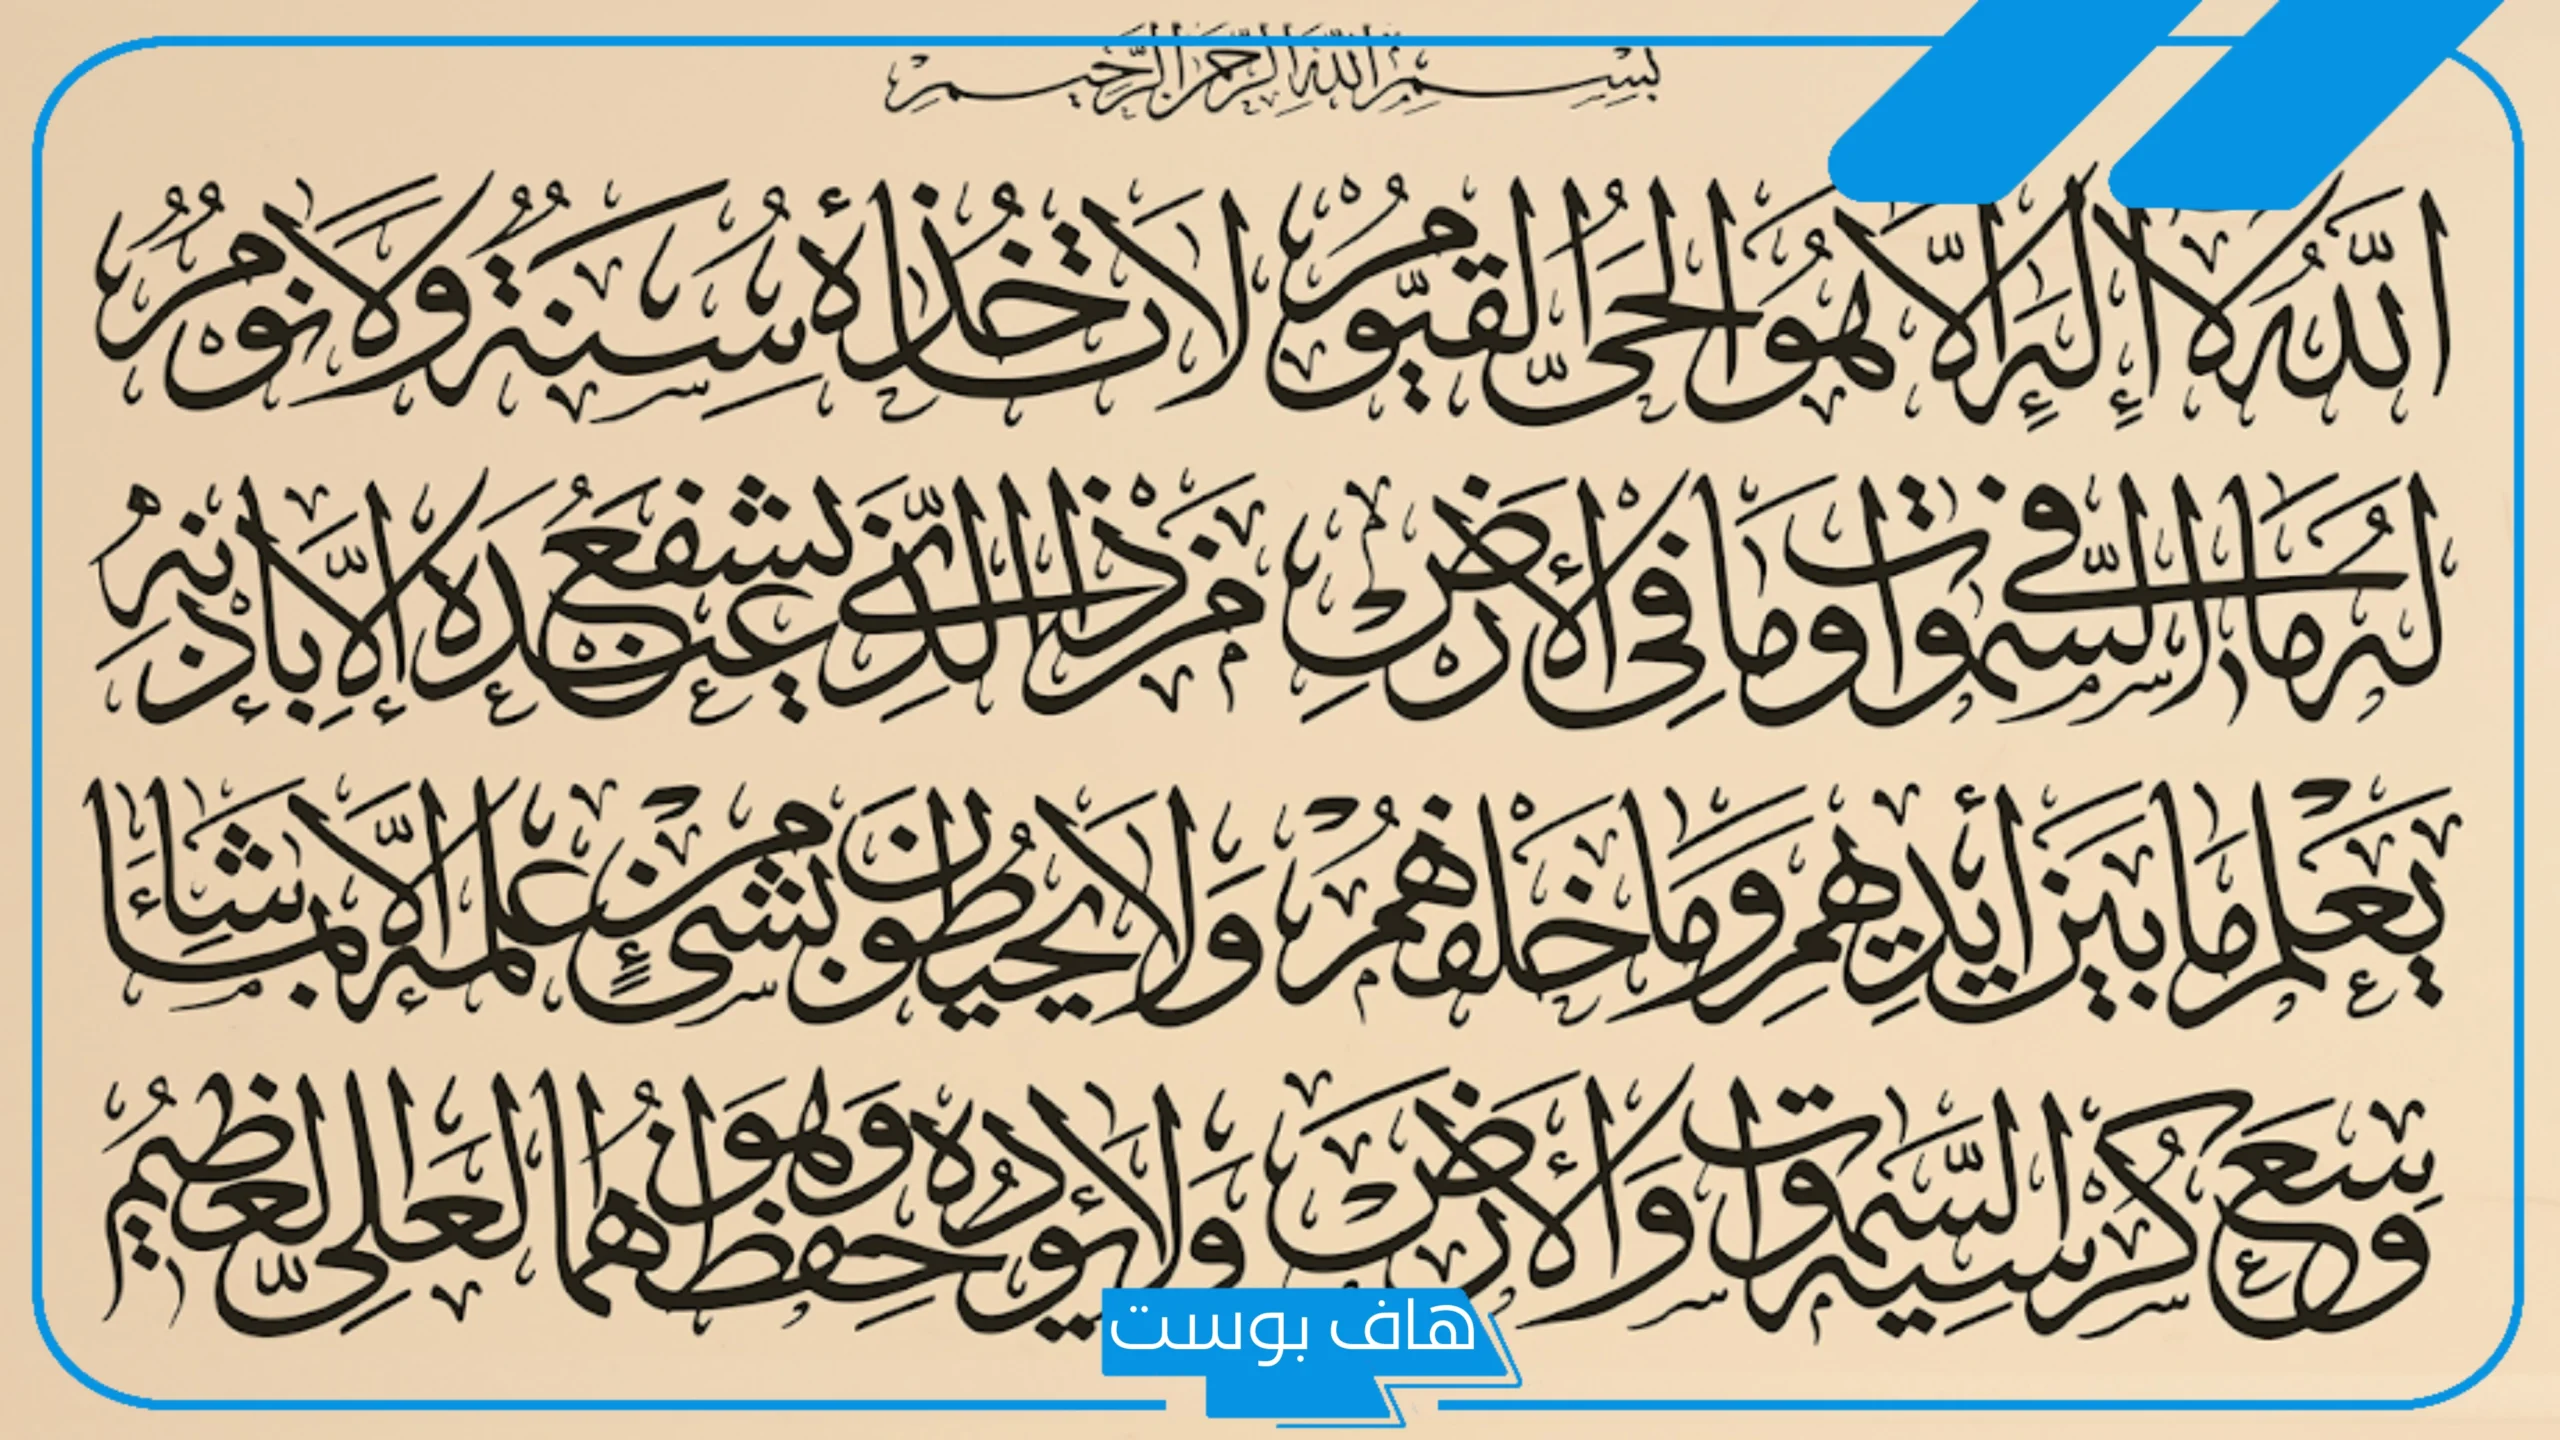 بِسْمِ اللّٰهِ الرَّحْمٰنِ الرَّحِيمِ
اللّٰهُ لَا إِلٰهَ إِلَّا هُوَ الْحَيُّ الْقَيُّومُ لَا تَأْخُذُهُ سِنَةٌ وَلَا نَوْمٌ
لَهُ مَا فِي السَّمٰوَاتِ وَمَا فِي الْأَرْضِ مَنْ ذَا الَّذِي يَشْفَعُ عِنْدَهُ إِلَّا بِإِذْنِهِ
يَعْلَمُ مَا بَيْنَ أَيْدِيهِمْ وَمَا خَلْفَهُمْ وَلَا يُحِيطُونَ بِشَيْءٍ مِنْ عِلْمِهِ إِلَّا بِمَا شَاءَ
وَسِعَ كُرْسِيُّهُ السَّمٰوَاتِ وَالْأَرْضَ وَلَا يَئُودُهُ حِفْظُهُمَا وَهُوَ الْعَلِيُّ الْعَظِيمُ
هاف بوست